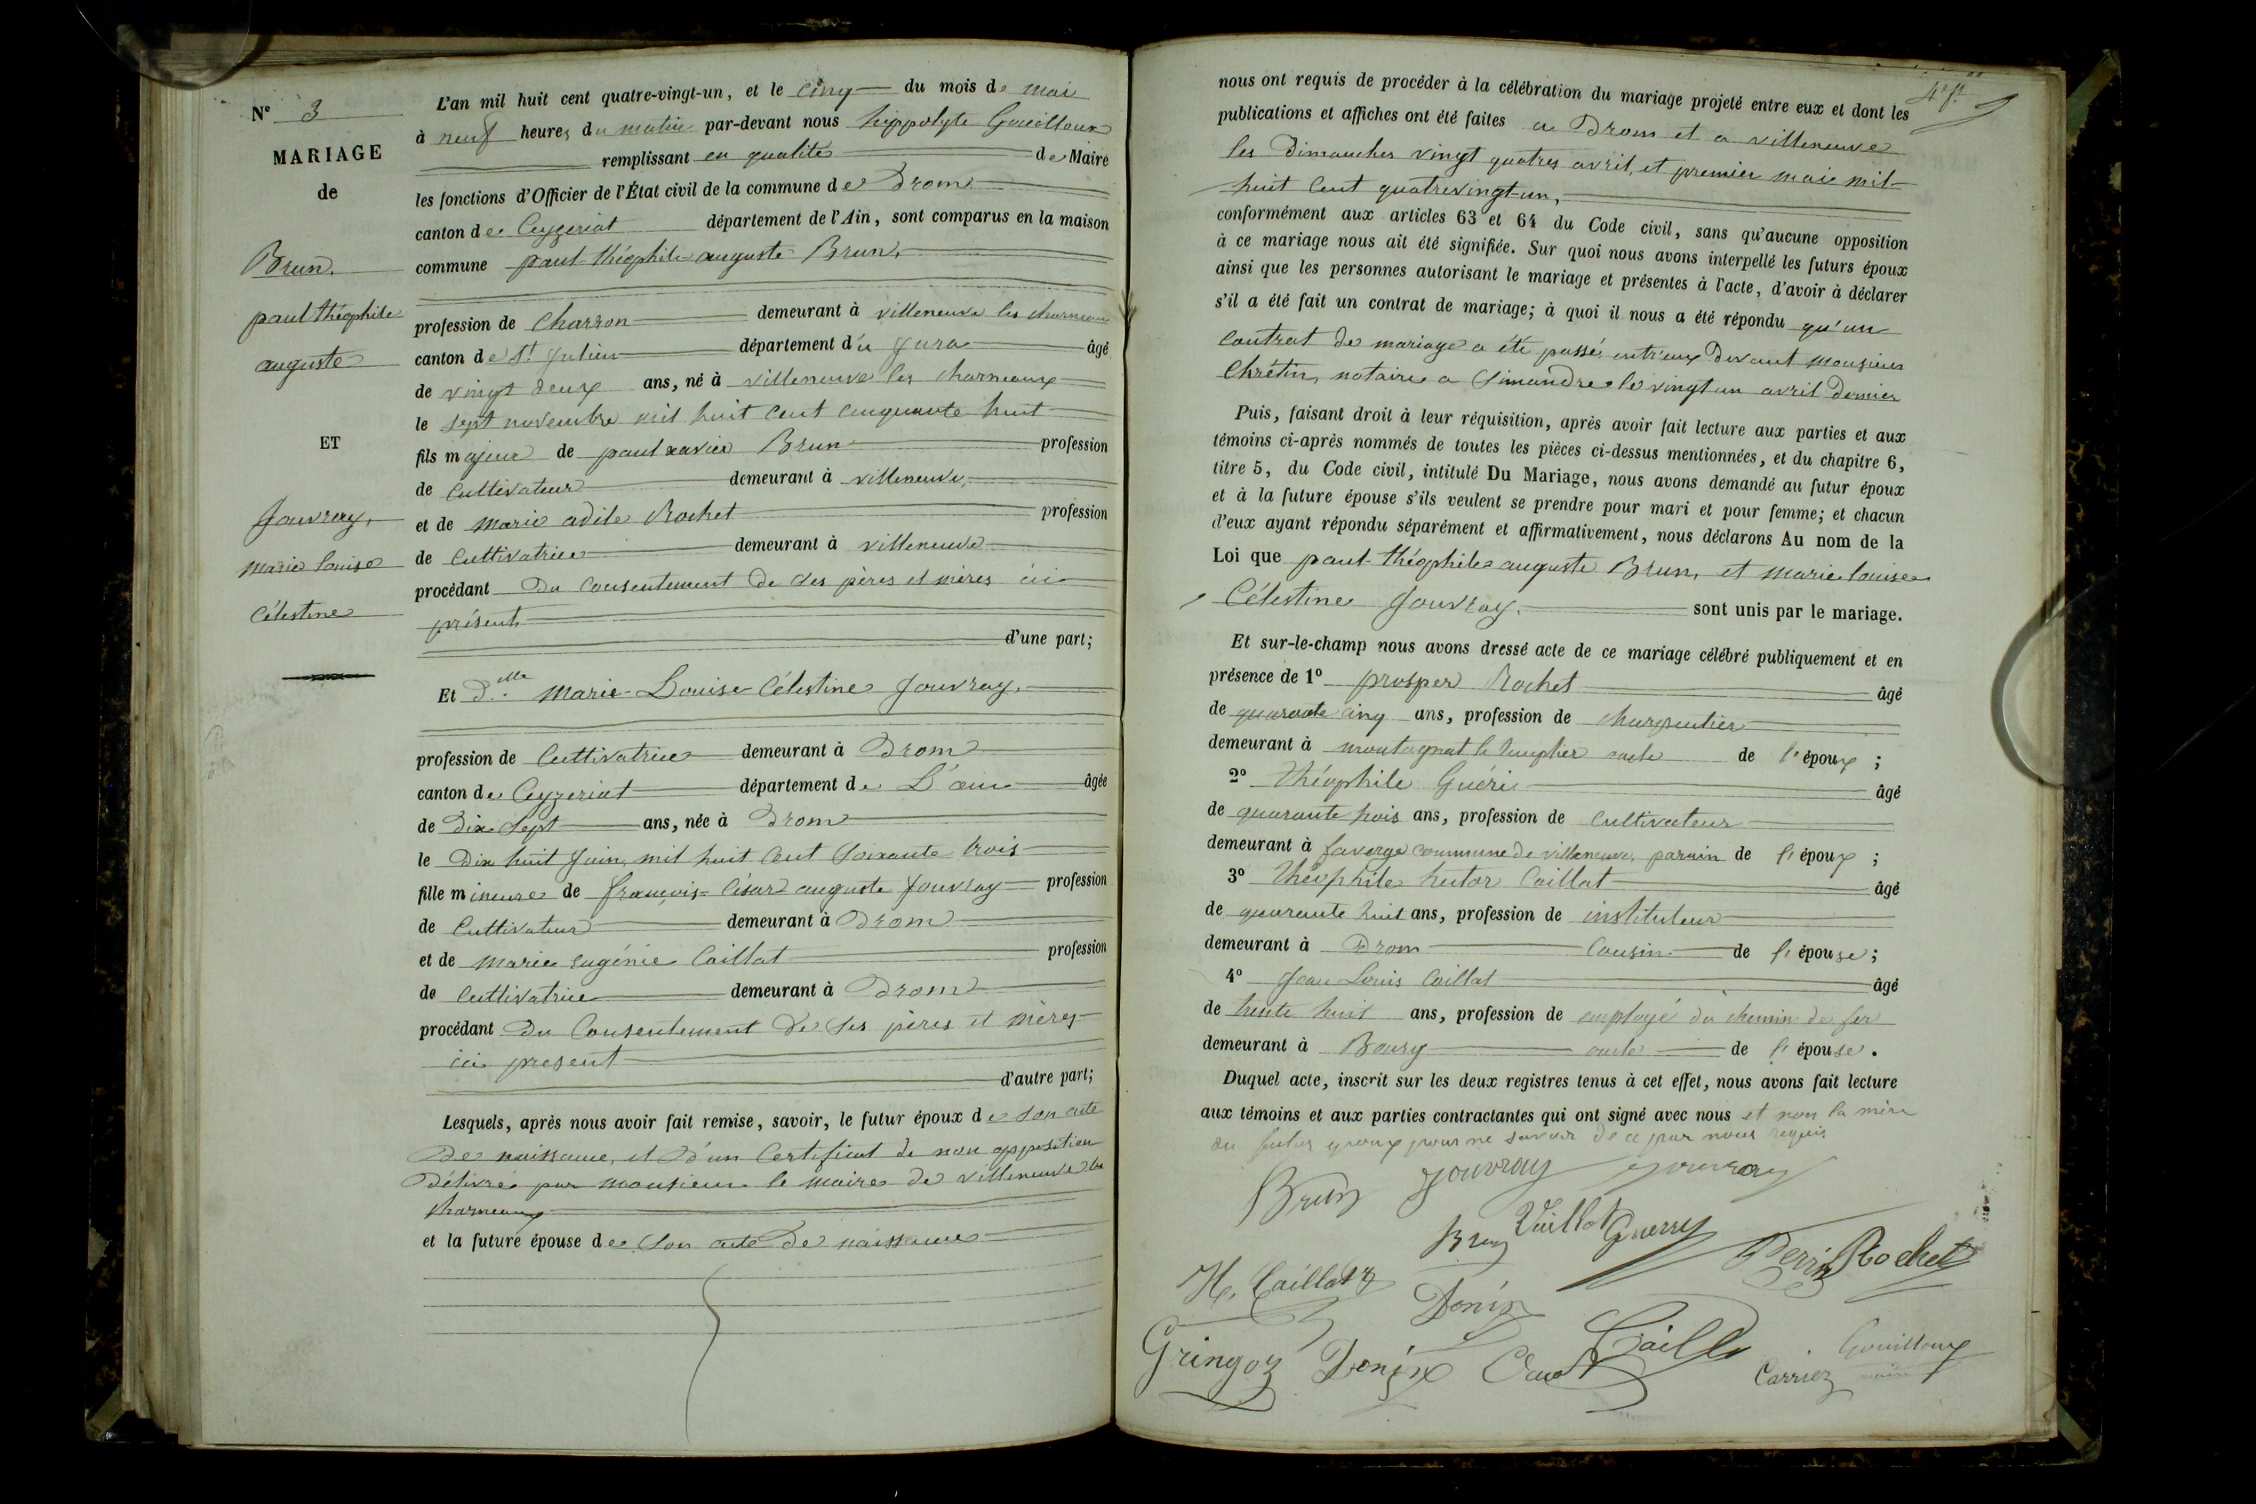 N° 3
MARIAGE
de
Brun,
paul théophile
auguste
ET
Jouvray,
marie louise
Célestine
L'an mil huit cent quatre-vingt-un, et le cinq du mois de mai
à neuf heures du matin par-devant nous hippolyte Gouilloux
remplissant en qualité de Maire
les fonctions d'Officier de l'État civil de la commune de Drom
canton de Ceyzeriat département de l'Ain, sont comparus en la maison
commune paul-théophile auguste Brun,
profession de Charron demeurant à villeneuve les charneaux
canton de St. Julien département du Jura âgé
de vingt deux ans, né à villeneuve les charneaux
le sept novembre mil huit cent cinquante huit
fils majeur de paul xavier Brun profession
de Cultivateur demeurant à villeneuve,
et de marie adile Rochet profession
de Cultivatrice demeurant à villeneuve
procédant Du Consentement De ses pères et mères ici
présent
d'une part;
Et Dlle. Marie-Louise Célestine Jouvray,
profession de Cultivatrice demeurant à Drom
canton de Ceyzeriat département de L'ain âgée
de Dix Sept ans, née à Drom
le Dix huit Juin, mil huit Cent Soixante trois
fille mineure de françois César auguste Jouvray profession
de Cultivateur demeurant à Drom
et de marie eugénie Caillat profession
de Cultivatrice demeurant à Drom
procédant Du Consentement De Ses pères et mères
ici présent
d'autre part;
Lesquels, après nous avoir fait remise, savoir, le futur époux de son acte
De naissance, et D'un Certificat de non opposition
Délivré par monsieur le maire de villeneuve les
charneaux
et la future épouse de Son acte De naissance
4e ft.
nous ont requis de procéder à la célébration du mariage projeté entre eux et dont les
publications et affiches ont été faites a Drom et a villeneuve
les Dimanches vingt quatres avril, et premier mai mil
huit Cent quatrevingt-un,
conformément aux articles 63 et 64 du Code civil, sans qu'aucune opposition
à ce mariage nous ait été signifiée. Sur quoi nous avons interpellé les futurs époux
ainsi que les personnes autorisant le mariage et présentes à l'acte, d'avoir à déclarer
s'il a été fait un contrat de mariage; à quoi il nous a été répondu qu'un
Contrat de mariage a été passé entr'eux Devant monsieur
Chrétin, notaire a Simandre le vingt un avril Dernier
Puis, faisant droit à leur réquisition, après avoir fait lecture aux parties et aux
témoins ci-après nommés de toutes les pièces ci-dessus mentionnées, et du chapitre 6,
titre 5, du Code civil, intitulé Du Mariage, nous avons demandé au futur époux
et à la future épouse s'ils veulent se prendre pour mari et pour femme; et chacun
d'eux ayant répondu séparément et affirmativement, nous déclarons Au nom de la
Loi que paul-théophile auguste Brun, et marie louise
Célestine Jouvray, sont unis par le mariage.
Et sur-le-champ nous avons dressé acte de ce mariage célébré publiquement et en
présence de 1° prosper Rochet âgé
de quarante cinq ans, profession de charpentier
demeurant à montagnat le templier oncle de l'époux ;
2° Théophile Guéri âgé
de quarante trois ans, profession de Cultivateur
demeurant à faverge commune de villeneuve, parain de l'époux ;
3° Théophile hector Caillat âgé
de quarante huit ans, profession de instituteur
demeurant à Drom Cousin de l'épouse ;
4° Jean Louis Caillat âgé
de trente huit ans, profession de employé du chemin de fer
demeurant à Bourg oncle de l'épouse.
Duquel acte, inscrit sur les deux registres tenus à cet effet, nous avons fait lecture
aux témoins et aux parties contractantes qui ont signé avec nous et non la mère
du futur époux pour ne savoir de ce par nous requis
Brun Jouvray Jouvray
Brun Caillat Guerry
Perrin Rochet
H. Caillat
Donin
Gringoz Donin Caillat
Carriez Gouilloux
maire